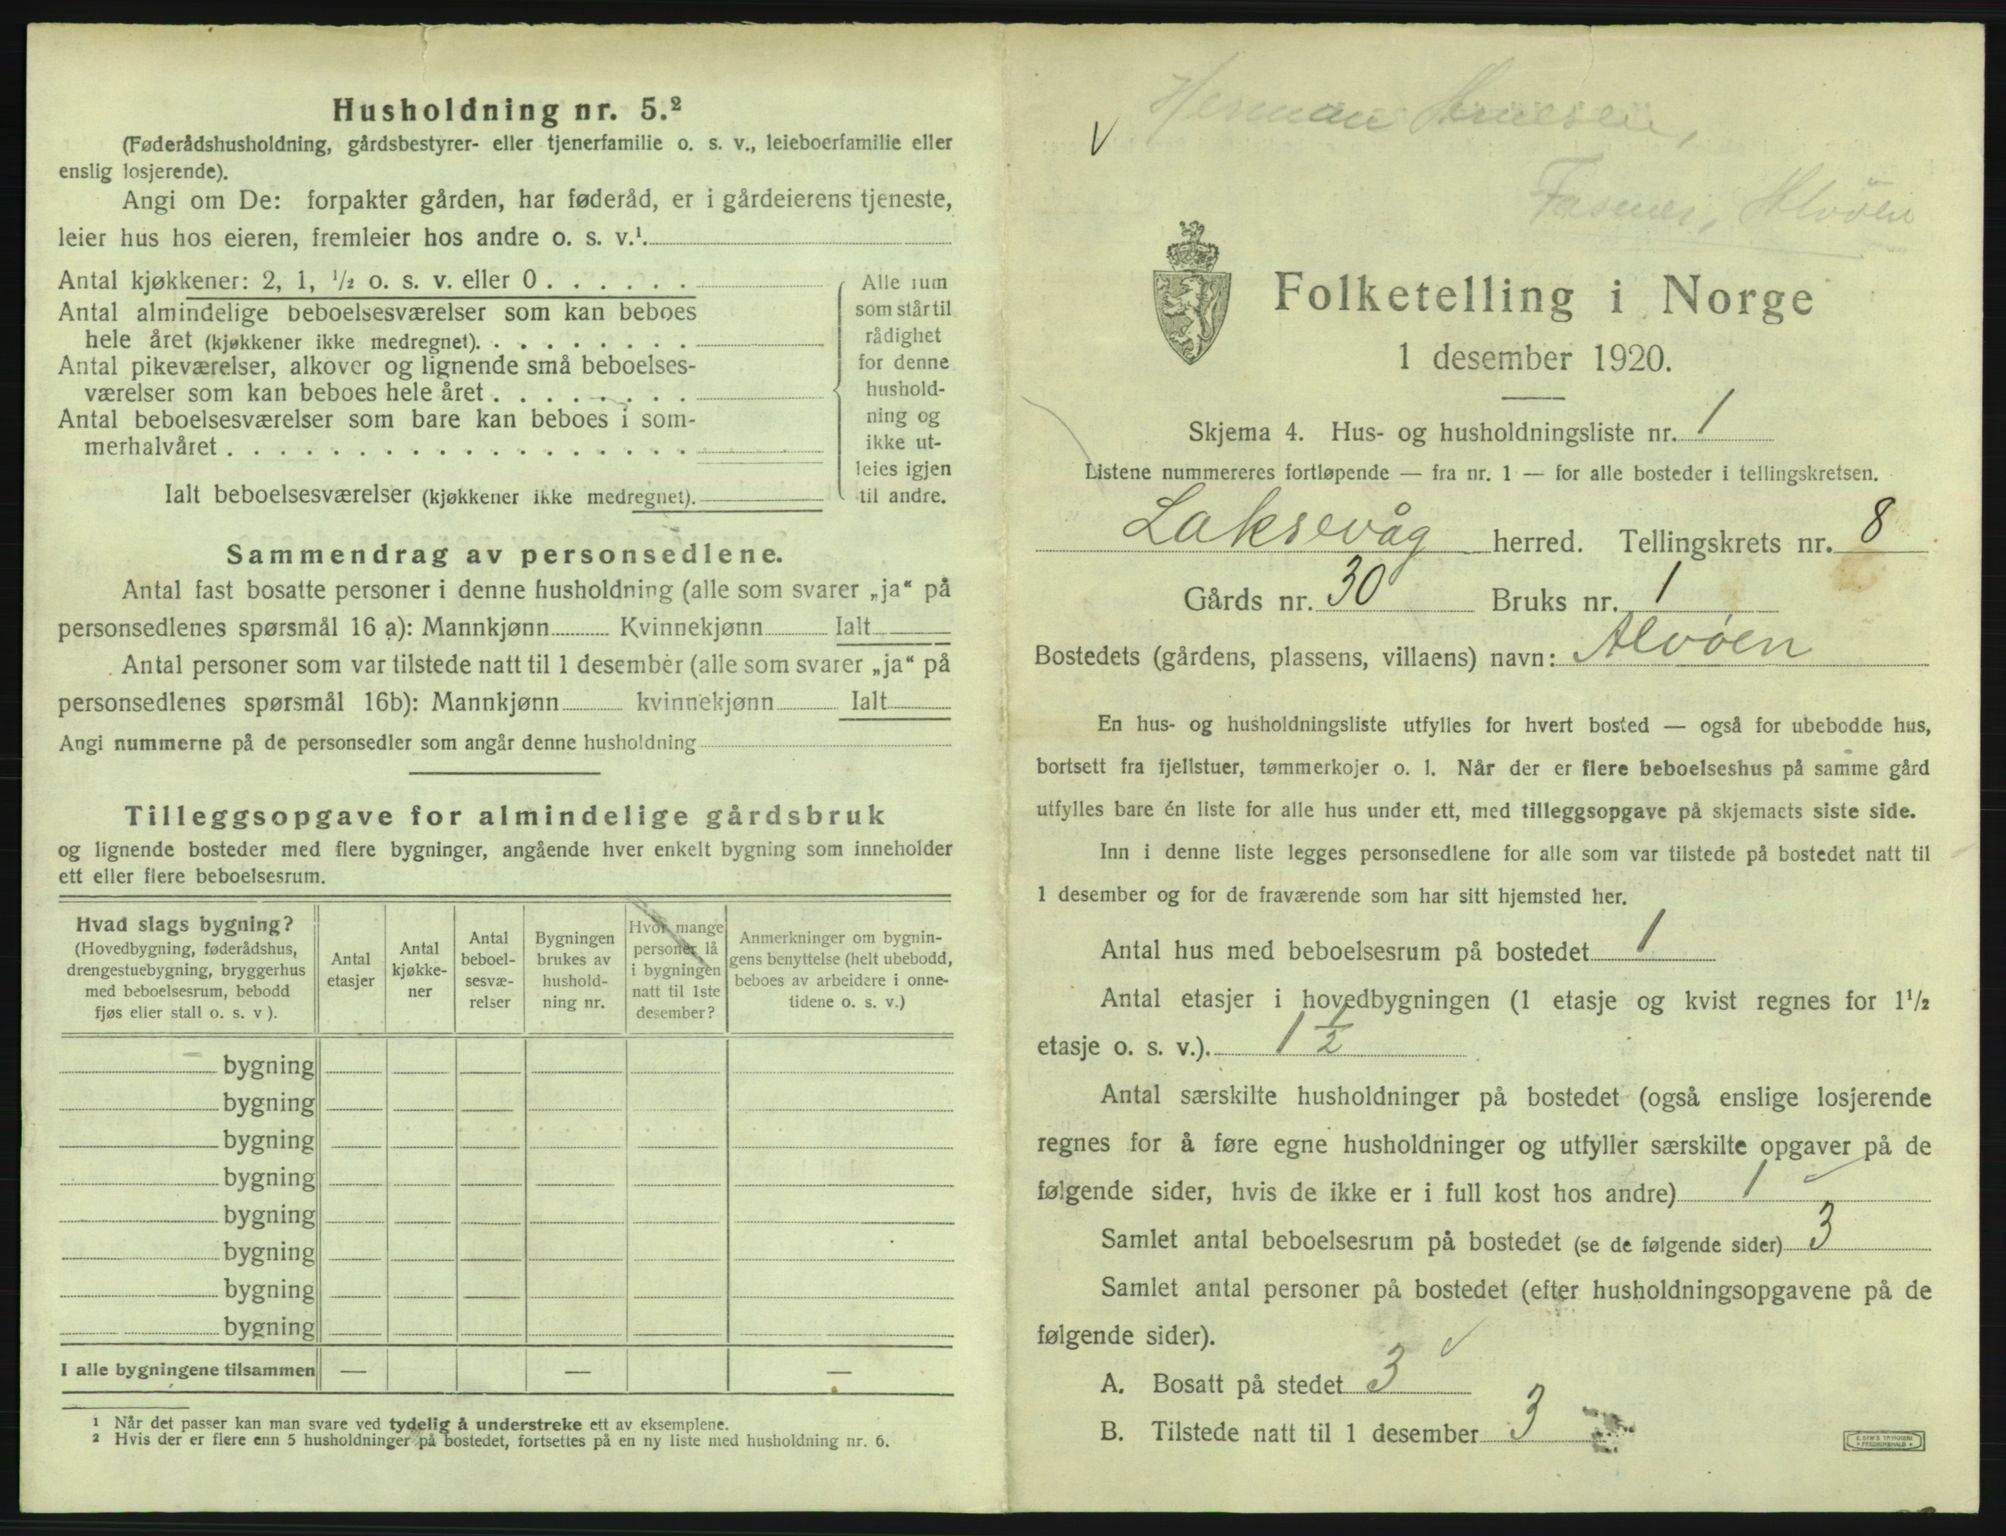 Husholdning nr. 5.²
(Føderådshusholdning, gårdsbestyrer- eller tjenerfamilie o. s. v., leieboerfamilie eller
enslig losjerende).
Angi om De: forpakter gården, har føderåd, er i gårdeierens tjeneste,
leier hus hos eieren, fremleier hos andre o. s. v.¹.
Antal kjøkkener: 2, 1, ½ o. s. v. eller 0 . . . . . .
Antal almindelige beboelsesværelser som kan beboes
hele året (kjøkkener ikke medregnet). . . . . . . . .
Antal pikeværelser, alkover og lignende små beboelses-
værelser som kan beboes hele året . . . . . . . .
Antal beboelsesværelser som bare kan beboes i som-
merhalvåret . . . . . . . . . . . . . . . . . .
Ialt beboelsesværelser (kjøkkener ikke medregnet).
Alle rum
som står til
rådighet
for denne
hushold-
ning og
ikke ut-
leies igjen
til andre.
Sammendrag av personsedlene.
Antal fast bosatte personer i denne husholdning (alle som svarer „ja“ på
personsedlenes spørsmål 16 a): Mannkjønn Kvinnekjønn Ialt
Antal personer som var tilstede natt til 1 desember (alle som svarer „ja“ på
personsedlenes spørsmål 16b): Mannkjønn kvinnekjønn Ialt
Angi nummerne på de personsedler som angår denne husholdning
Tilleggsopgave for almindelige gårdsbruk
og lignende bosteder med flere bygninger, angående hver enkelt bygning som inneholder
ett eller flere beboelsesrum.
Hvad slags bygning?
(Hovedbygning, føderådshus,
drengestuebygning, bryggerhus
med beboelsesrum, bebodd
fjøs eller stall o. s. v ).
Antal
etasjer
Antal
kjøkke-
ner
Antal
beboel-
sesvæ-
relser
Bygningen
brukes av
hushold-
ning nr.
Hvor mange
personer lå
i bygningen
natt til 1ste
desember?
Anmerkninger om bygnin-
gens benyttelse (helt ubebodd,
beboes av arbeidere i onne-
tidene o. s. v.)
bygning
bygning
bygning
bygning
bygning
bygning
bygning
bygning
I alle bygningene tilsammen — — —
¹ Når det passer kan man svare ved tydelig å understreke ett av eksemplene.
² Hvis der er flere enn 5 husholdninger på bostedet, fortsettes på en ny liste med husholdning nr. 6.
Herman
Alvöen
Folketelling i Norge
1 desember 1920.
Skjema 4. Hus- og husholdningsliste nr. 1
Listene nummereres fortløpende — fra nr. 1 — for alle bosteder i tellingskretsen.
Laksevåg herred. Tellingskrets nr. 8
Gårds nr. 30 Bruks nr. 1
Bostedets (gårdens, plassens, villaens) navn: Alvøen
En hus- og husholdningsliste utfylles for hvert bosted — også for ubebodde hus,
bortsett fra fjellstuer, tømmerkojer o. l. Når der er flere beboelseshus på samme gård
utfylles bare én liste for alle hus under ett, med tilleggsopgave på skjemaets siste side.
Inn i denne liste legges personsedlene for alle som var tilstede på bostedet natt til
1 desember og for de fraværende som har sitt hjemsted her.
Antal hus med beboelsesrum på bostedet 1
Antal etasjer i hovedbygningen (1 etasje og kvist regnes for 1½
etasje o. s. v.). 1 ½
Antal særskilte husholdninger på bostedet (også enslige losjerende
regnes for å føre egne husholdninger og utfyller særskilte opgaver på de
følgende sider, hvis de ikke er i full kost hos andre) 1
Samlet antal beboelsesrum på bostedet (se de følgende sider) 3
Samlet antal personer på bostedet (efter husholdningsopgavene på de
følgende sider).
A. Bosatt på stedet 3
B. Tilstede natt til 1 desember 3